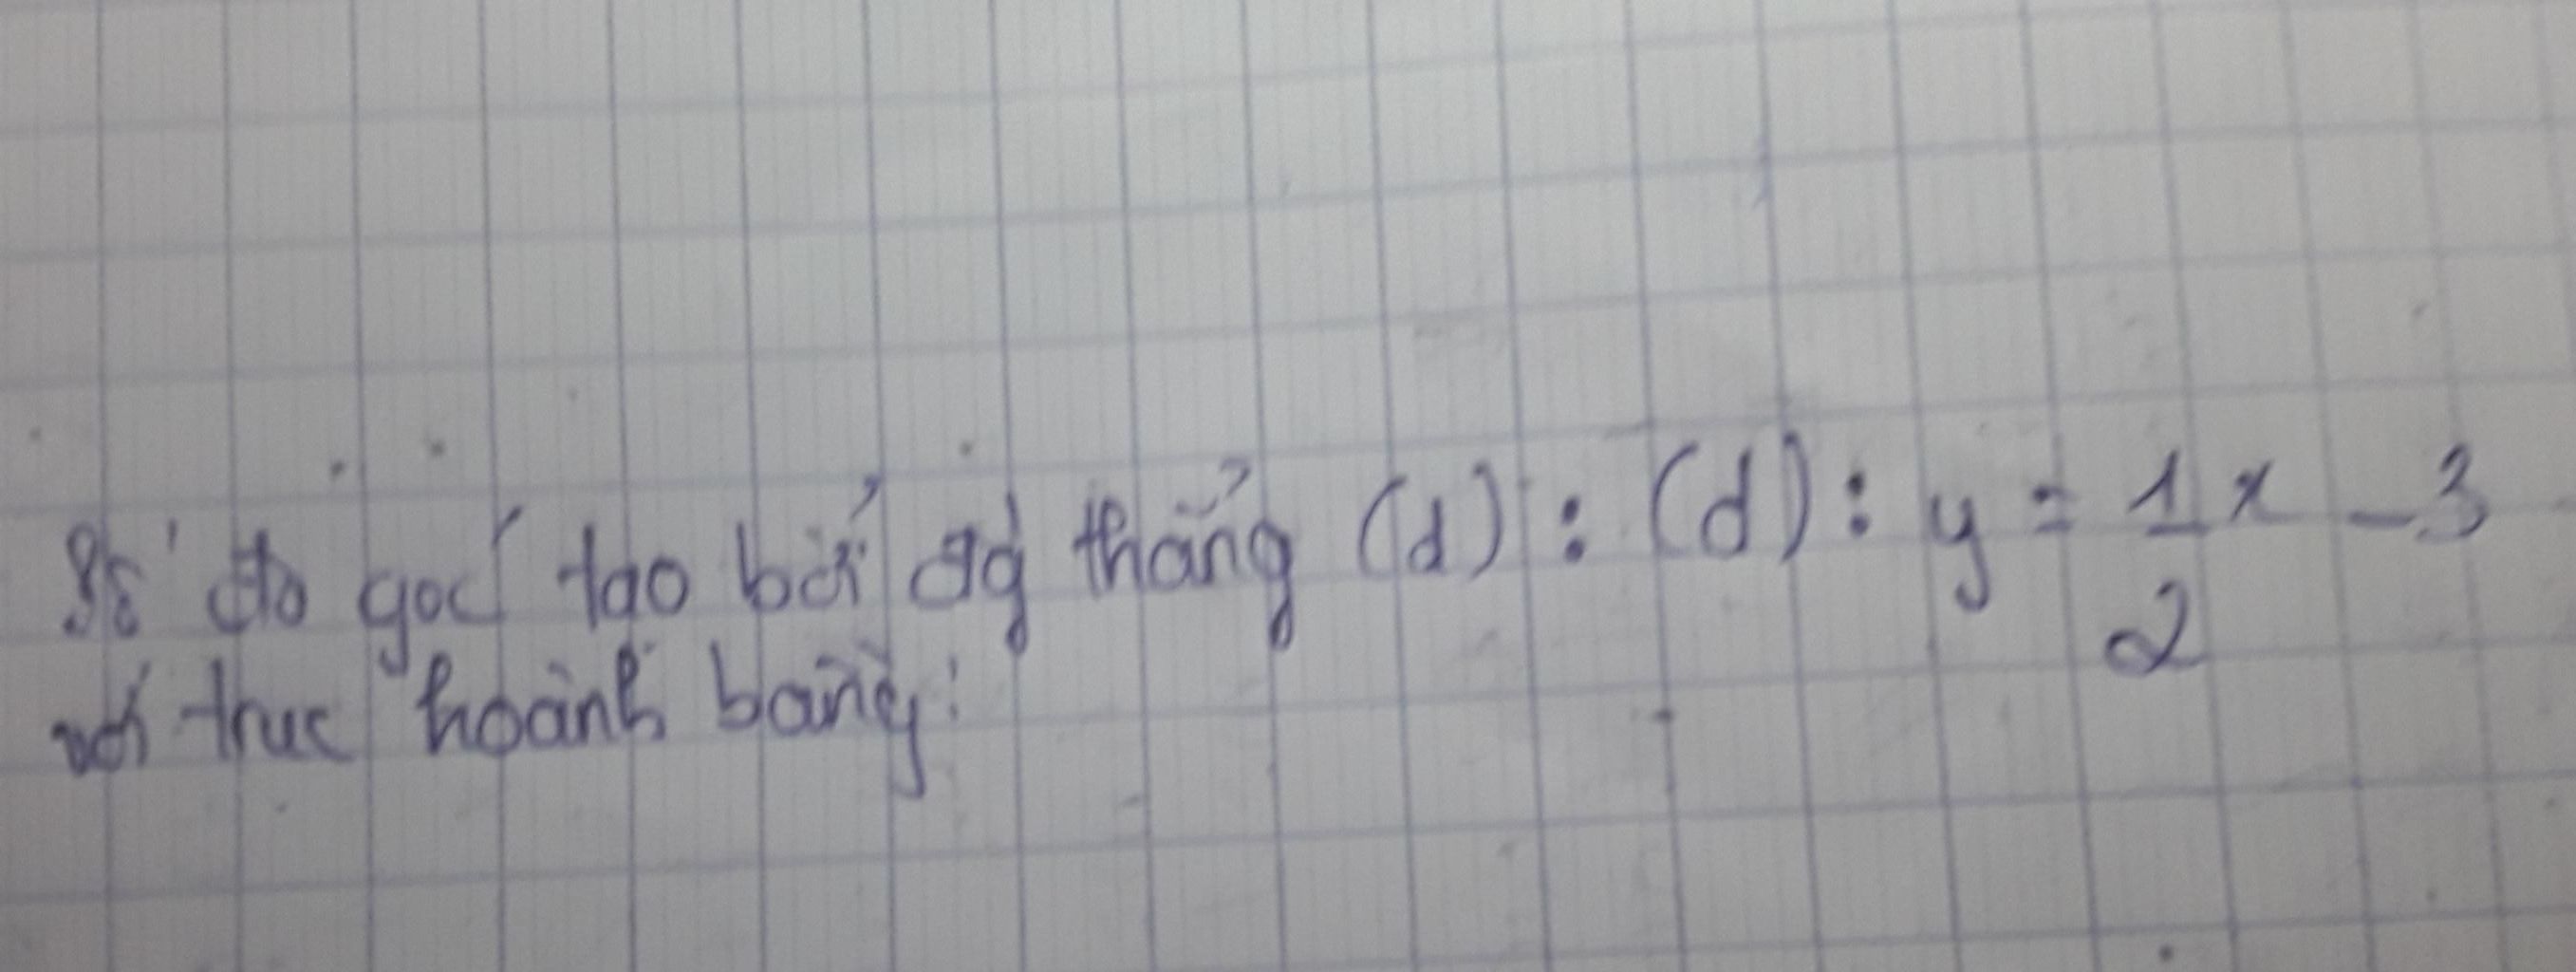 Số đo góc tạo bởi đg thẳng (d) : (d) : y = 1/2 x - 3
với trục hoành bằng: